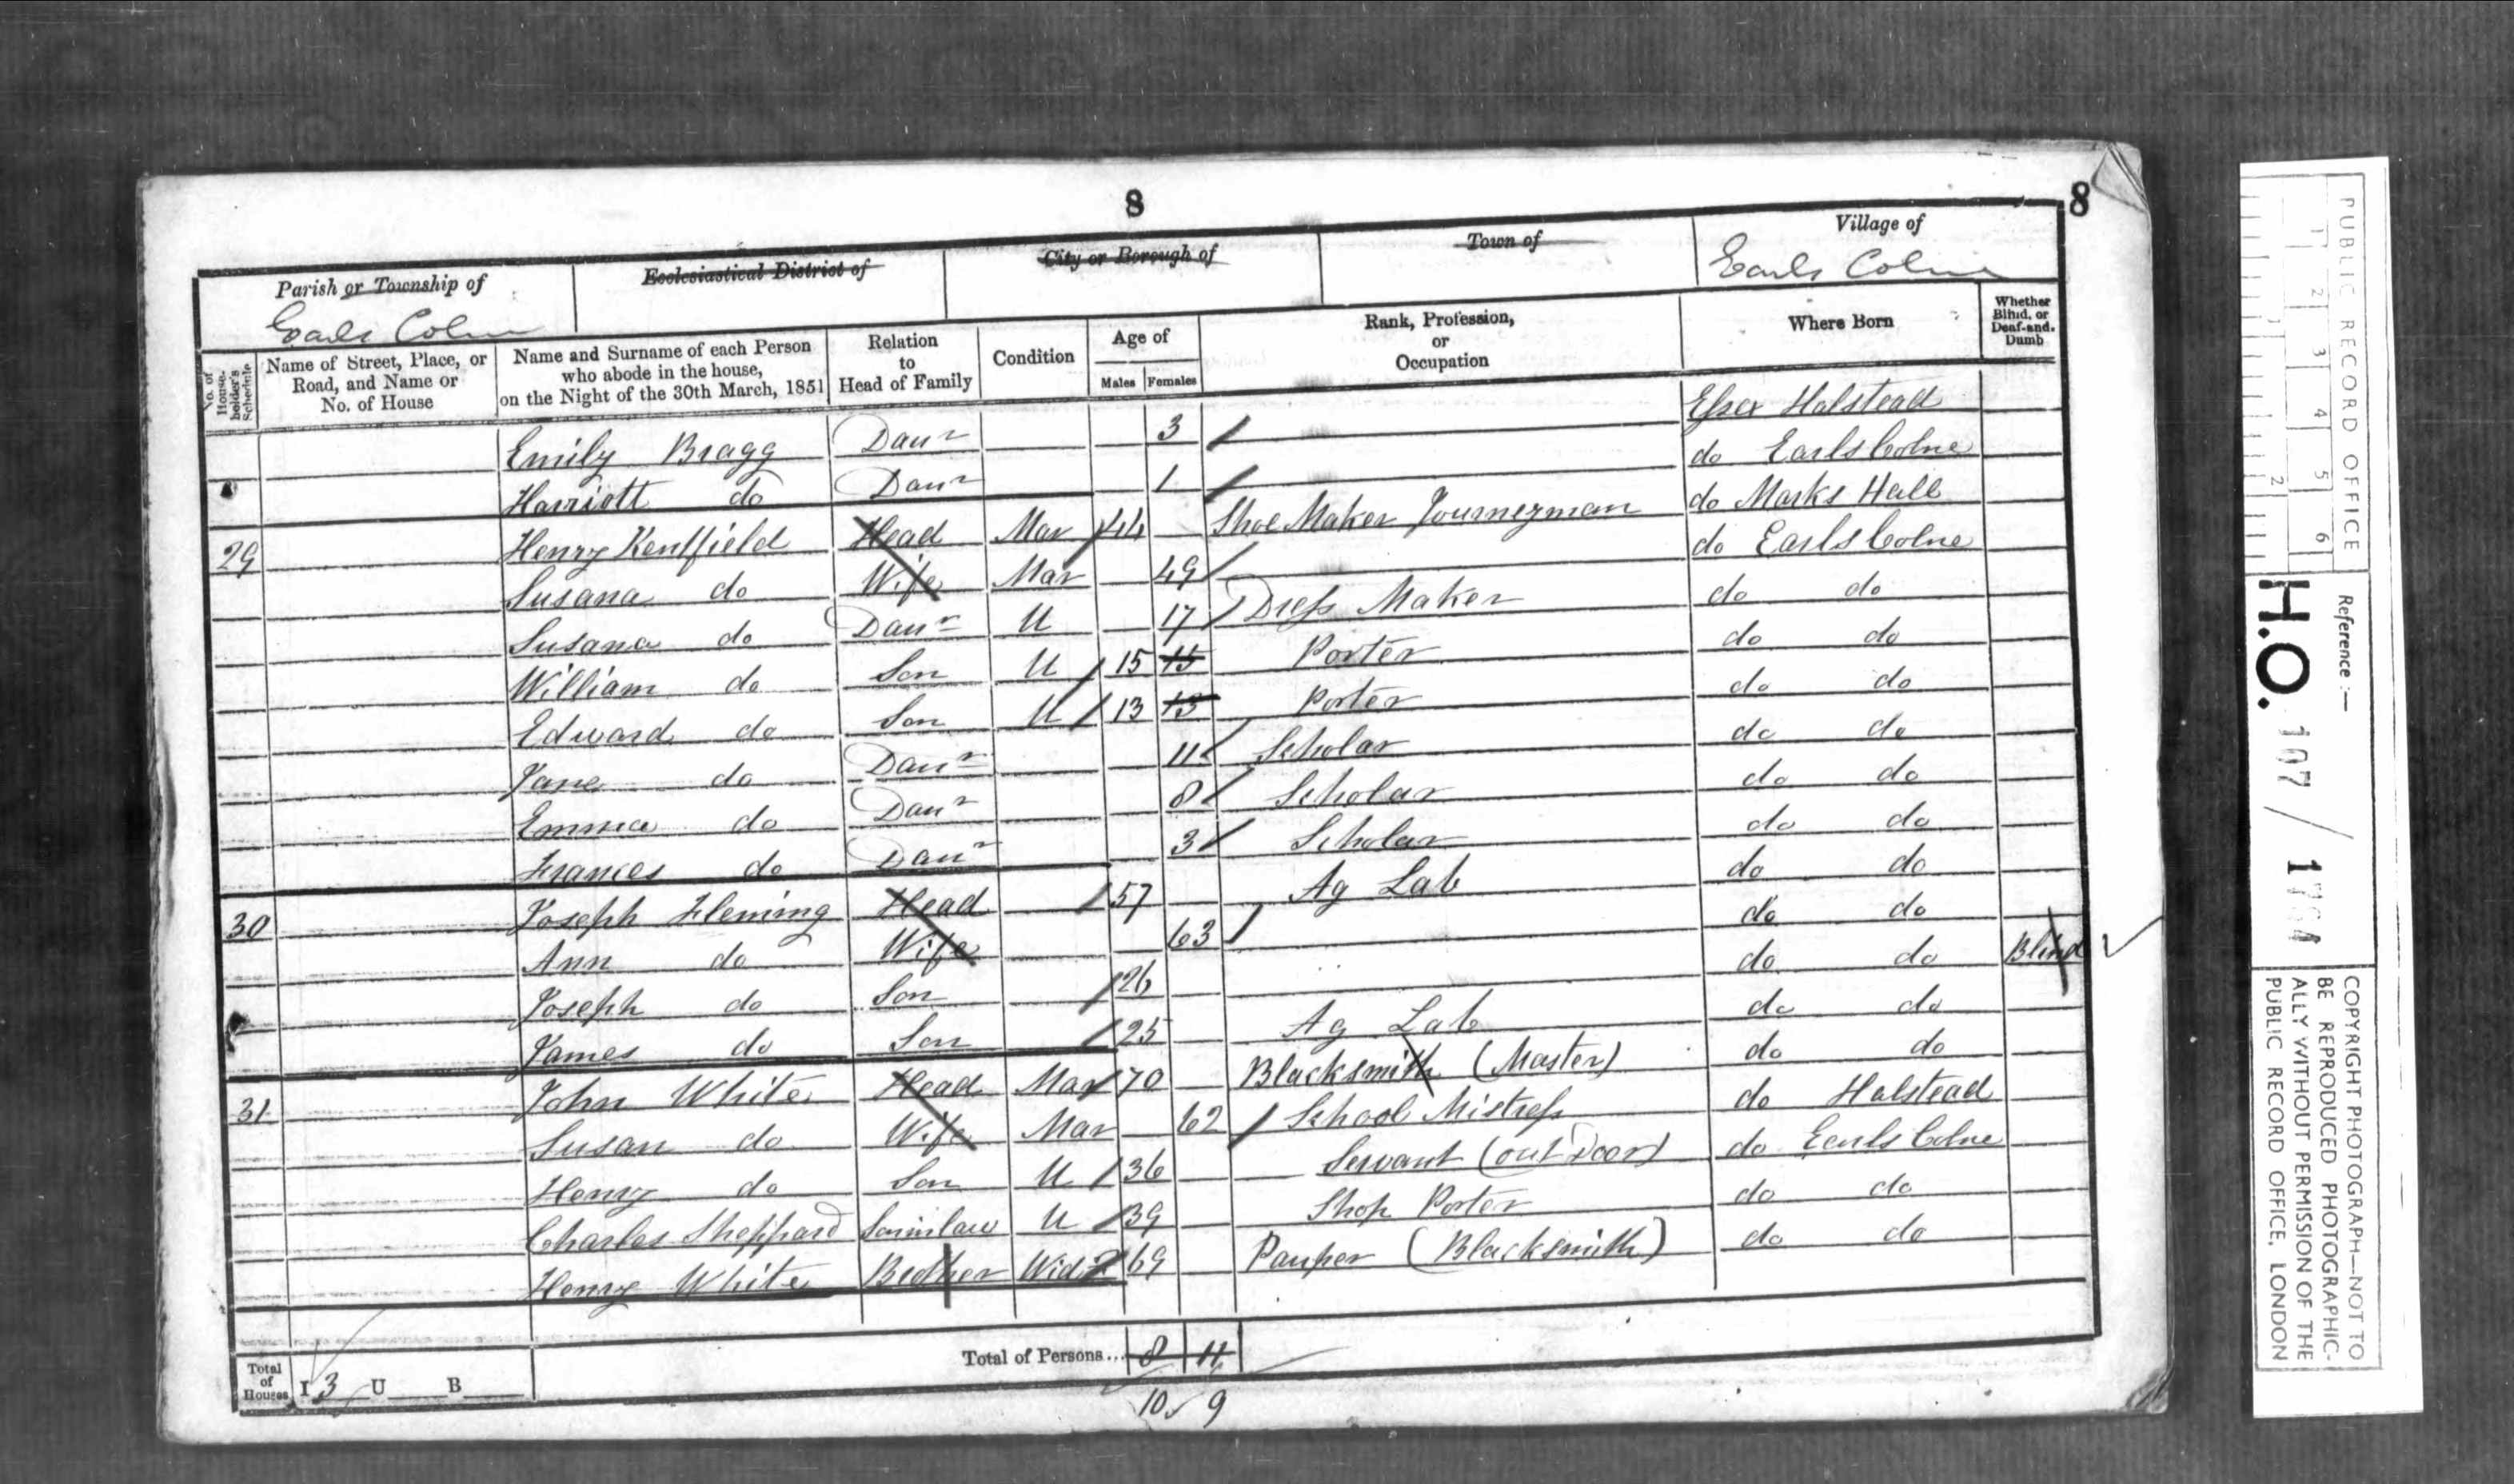 8
8
Parish or Township of
Earls Colne
Ecclesiastical District of
City or Borough of
Town of
Village of
Earls Colne
No. of House-holder's Schedule
Name of Street, Place, or Road, and Name or No. of House
Name and Surname of each Person who abode in the house, on the Night of the 30th March, 1851
Relation to Head of Family
Condition
Age of
Males Females
Rank, Profession, or Occupation
Where Born
Whether Blind, or Deaf-and-Dumb
Emily Bragg Daur 3 Essex Halstead
Harriott do Daur 1 do Earls Colne
29 Henry Kentfield Head Mar 44 Shoe Maker Journeyman do Marks Hall
Susana do Wife Mar 49 do Earls Colne
Susana do Daur U 17 Dress Maker do do
William do Son U 15 15 Porter do do
Edward do Son U 13 13 Porter do do
Jane do Daur 11 Scholar do do
Emma do Daur 8 Scholar do do
Frances do Daur 3 Scholar do do
30 Joseph Fleming Head 57 Ag Lab do do
Ann do Wife 63 do do
Joseph do Son 26 do do Blind
James do Son 25 Ag Lab do do
31 John White Head Mar 70 Blacksmith (Master) do do
Susan do Wife Mar 62 School Mistress do Halstead
Henry do Son U 36 Servant (out Door) do Earls Colne
Charles Sheppard Soninlaw U 39 Shop Porter do do
Henry White Brother Widr 69 Pauper (Blacksmith) do do
Total of Houses I 3 U B
Total of Persons... 8 11
10 9
PUBLIC RECORD OFFICE
1 2 3 4 5 6
1 2
Reference :—
H.O. 107 /
COPYRIGHT PHOTOGRAPH—NOT TO
BE REPRODUCED PHOTOGRAPHIC-
ALLY WITHOUT PERMISSION OF THE
PUBLIC RECORD OFFICE, LONDON